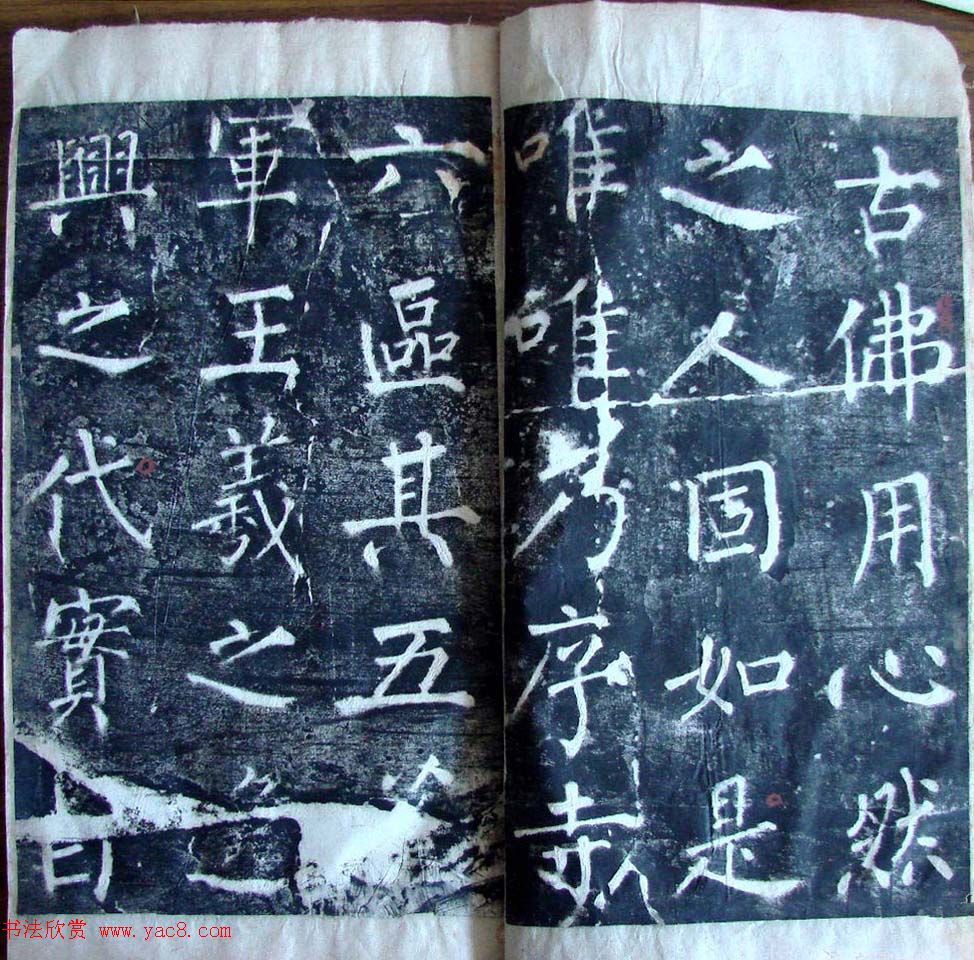 古佛用心然
之人固如是
唯唯序
六區其五
軍王羲之
興之代實
书法欣赏 www.yac8.com